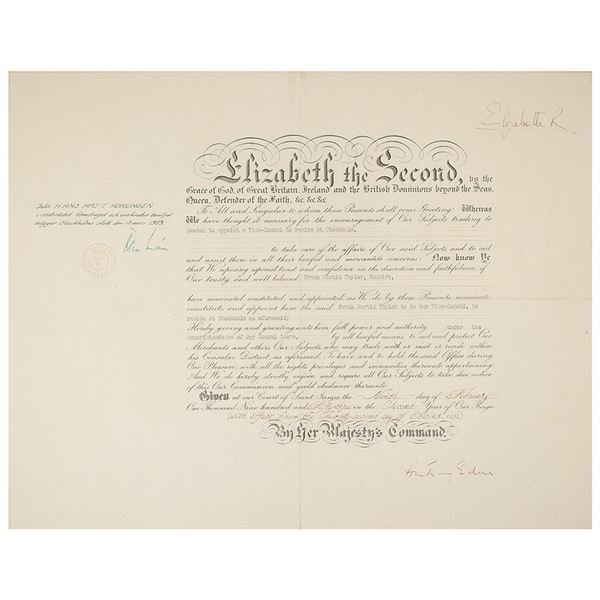 Elizabeth R
Inför HANS MAJ:T KONUNGEN
i statsrådet föredraget och
Stockholms slott den 13 mars 1953
Elizabeth the Second, by the
Grace of God, of Great Britain, Ireland and the British Dominions beyond the Seas,
Queen, Defender of the Faith, &c. &c. &c.
To All and Singular to whom these Presents shall come Greeting: Whereas
We have thought it necessary for the encouragement of Our Subjects trading to
Sweden to appoint a Vice-Consul to reside at Stockholm,
to take care of the affairs of Our said Subjects, and to aid
and assist them in all their lawful and mercantile concerns: Now know Ye
that We reposing especial trust and confidence in the discretion and faithfulness of
Our trusty and well beloved Frank Martin Taylor, Esquire,
have nominated constituted and appointed as We do by these Presents nominate,
constitute and appoint him the said Frank Martin Taylor to be Our Vice-Consul, to
reside at Stockholm as aforesaid;
Hereby giving and granting unto him full power and authority under the
superintendence of Our Consul there, by all lawful means to aid and protect Our
Merchants and others Our Subjects who may trade with or visit or reside within
his Consular District as aforesaid. To have and to hold the said Office during
Our Pleasure with all the rights privileges and immunities thereunto appertaining.
And We do hereby strictly enjoin and require all Our Subjects to take due notice
of this Our Commission and yield obedience thereunto.
Given at our Court of Saint James the day of February
One Thousand Nine hundred and Fifty three in the Second Year of Our Reign
(with effect from the Twenty-second day of 1952)
By Her Majesty's Command.
Anthony Eden